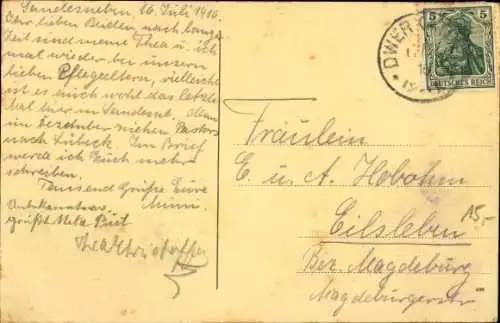 Sandesneben. 26. Juli 1916.
Ihr lieben Beiden, nach langer
Zeit sind meine Thea u. ich
mal wieder bei unsern
lieben Pflegeeltern, vielleicht
ist es auch wohl das letzte
mal hier in Sandesnb. denn
im Dezember ziehen Pastors
nach Lübeck. Im Brief
werde ich Euch mehr
schreiben.
Tausend Grüße Eure
Mimi.
Unbekannterw.
grüßt Meta
DWER
5 5
DEUTSCHES REICH
Fräulein
E. u. A. Hobohm
Eilsleben
Bez. Magdeburg
15,-